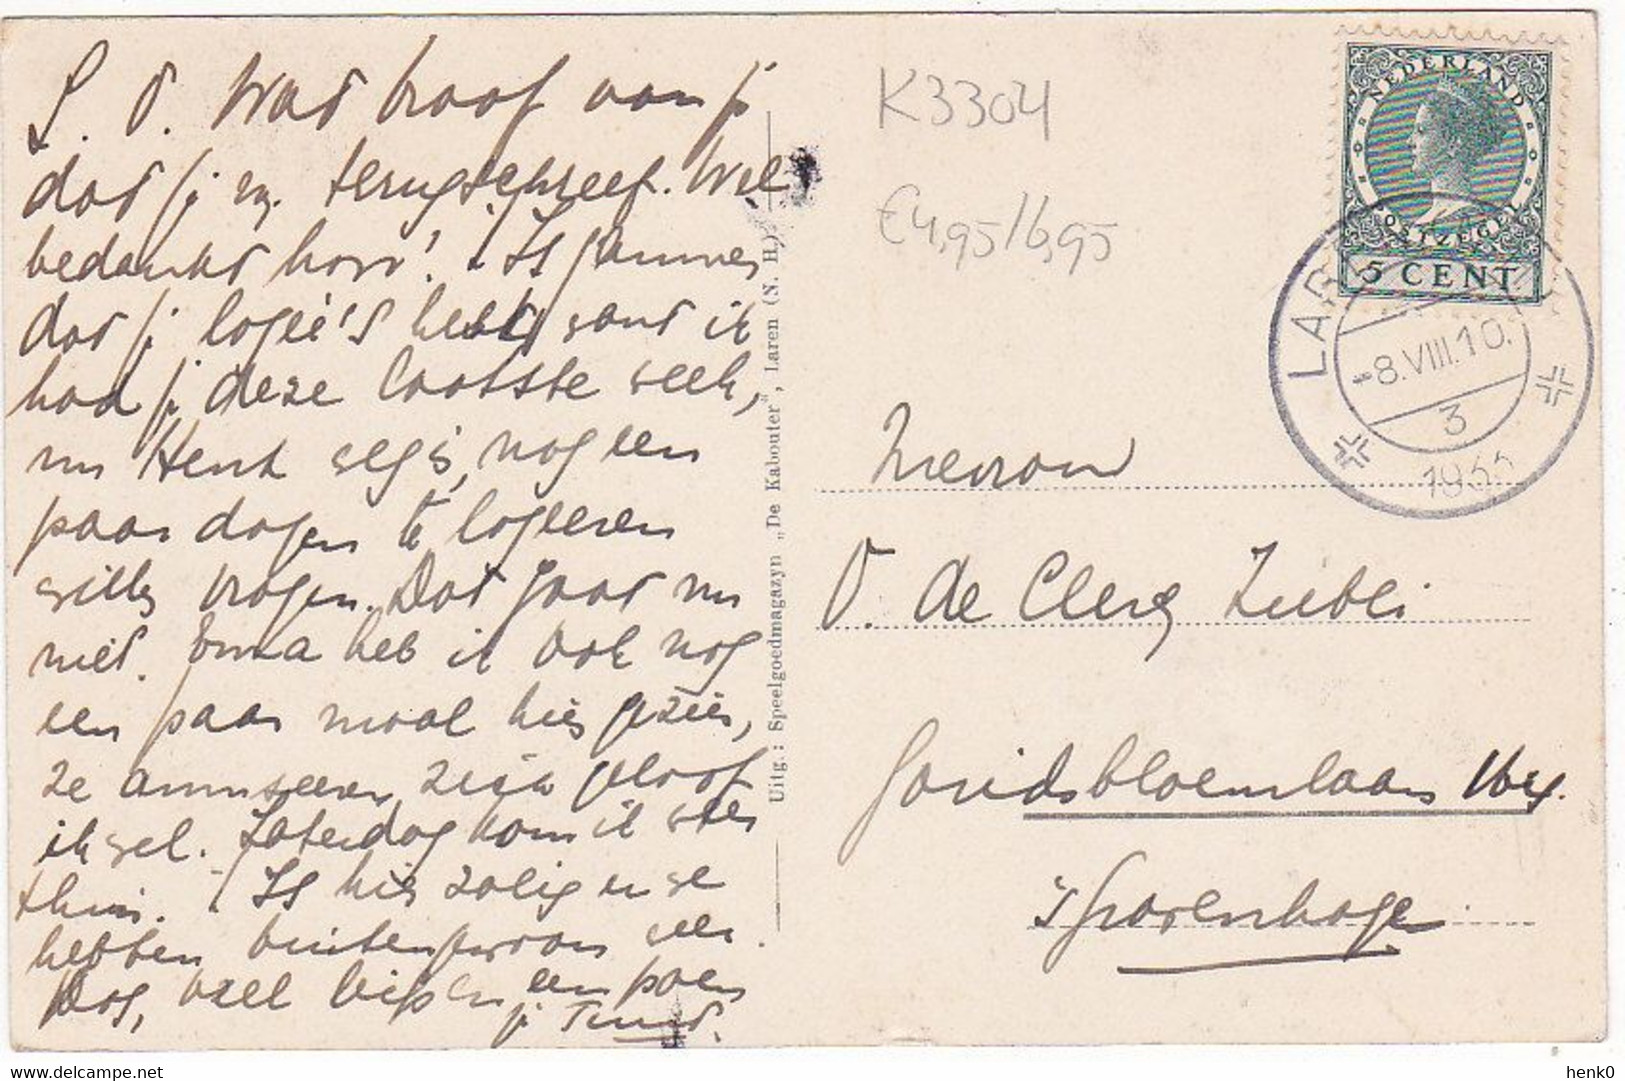 L. O. Wat braaf van je
dat je m. terugschreef. Wel
bedankt hoor! 't Is jammer
dat je logé's hebt, want ik
had je deze laatste week,
nu Henk weg is, nog een
paar dagen te logeeren
willen vragen. Dat gaat nu
niet. Oma heb ik ook nog
een paar maal hier gezien,
ze amuseerde zich geloof
ik wel. Zaterdag kom ik weer
thuis. 't Is hier zalig en we
hebben buitengewoon weer.
Dag, veel liefs en een poen
je Truus.
Uitg.: Speelgoedmagazyn „De Kabouter”, Laren (N. H.)
K3304
€4,95/6,95
NEDERLAND
POSTZEGEL
5 CENT
LAR
-8.VIII.10.
3
193
Mevrouw
O. de Clercq Zubli
Goudsbloemlaan
's Gravenhage
henk0